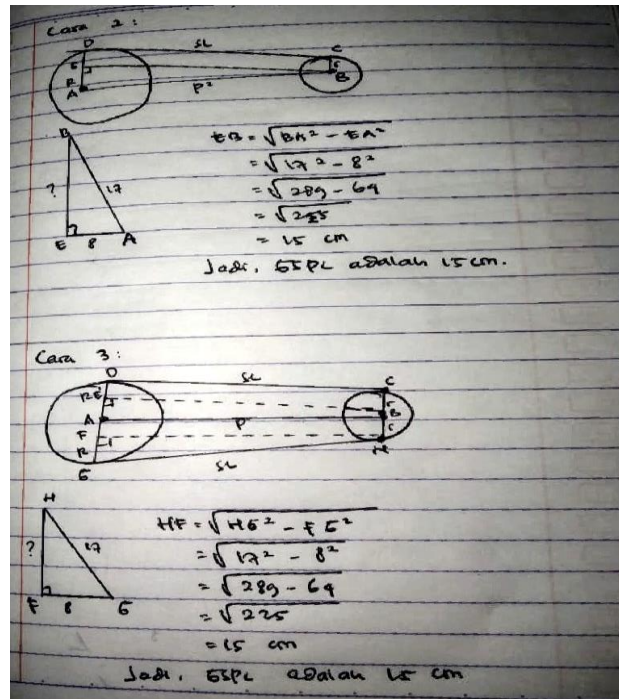 Cara 2 :
D SL C
E r
R B
A P²
B
? 17
E 8 A
EB = √BA² - EA²
= √17² - 8²
= √289 - 64
= √225
= 15 cm
Jadi, GSPL adalah 15 cm.
Cara 3 :
D SL C
R E r
A P B
F r
R H
G SL
H
? 17
F 8 G
HF = √HG² - FG²
= √17² - 8²
= √289 - 64
= √225
= 15 cm
Jadi, GSPL adalah 15 cm